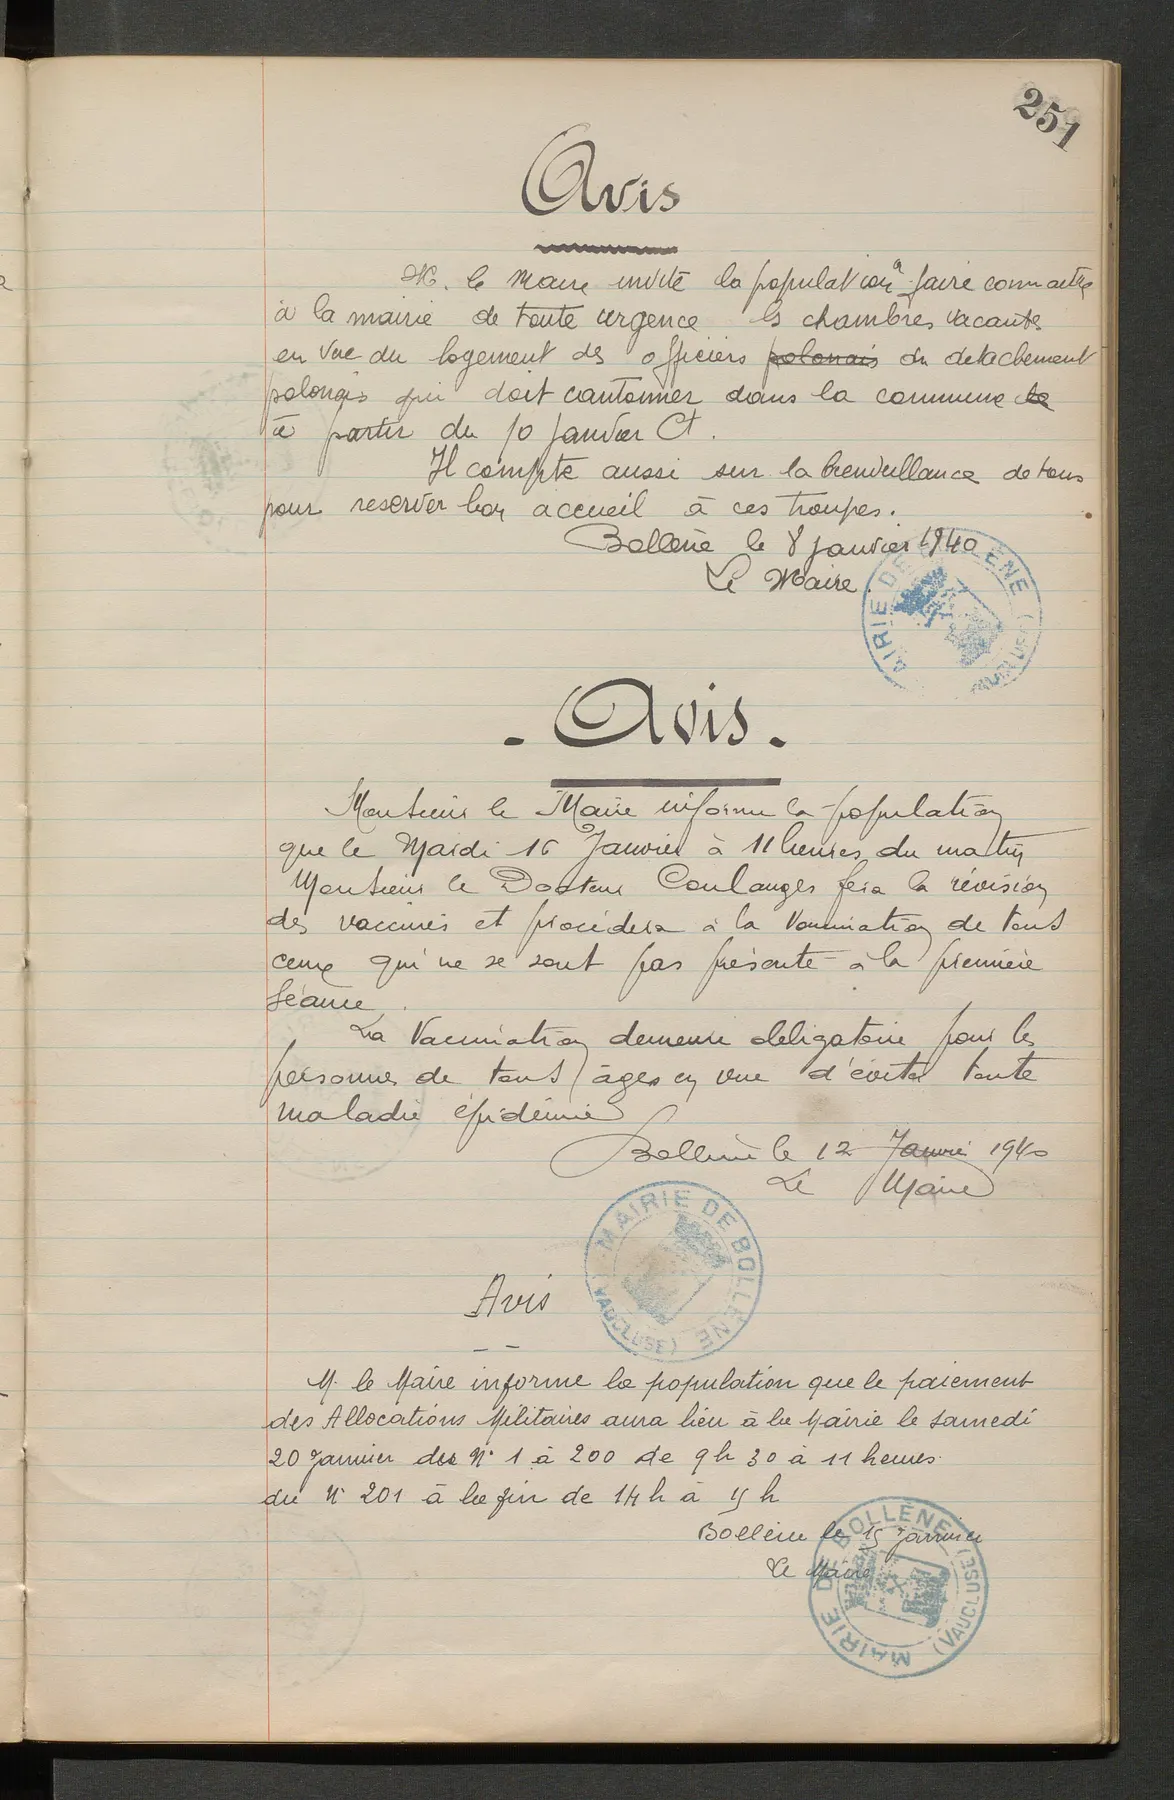 251
Avis
M. le Maire invite la population à faire connaitre
à la mairie de toute urgence les chambres vacantes
en vue du logement des officiers polonais du detachement
polonais qui doit cantonner dans la commune
à partir du 10 Janvier Ct.
Il compte aussi sur la bienveillance de tous
pour reserver bon accueil à ces troupes.
Bollène le 8 janvier 1940
Le Maire.
MAIRIE DE BOLLÈNE (VAUCLUSE)
- Avis. -
Monsieur le Maire informe la population
que le Mardi 16 Janvier à 11 heures du matin
Monsieur le Docteur Coulanges fera la révision
des vaccinés et procédera à la Vaccination de tous
ceux qui ne se sont pas présenté à la première
séance.
La Vaccination demeure obligatoire pour les
personnes de tous âges en vue d'éviter toute
maladie épidémie
Bollène le 12 Janvier 1940
Le Maire
MAIRIE DE BOLLÈNE (VAUCLUSE)
Avis
M. le Maire informe la population que le paiement
des Allocations Militaires aura lieu à la Mairie le samedi
20 Janvier des N° 1 à 200 de 9h 30 à 11 heures.
du N° 201 à la fin de 14 h à 15 h
Bollène le 15 Janvier
Le Maire
MAIRIE DE BOLLÈNE (VAUCLUSE)